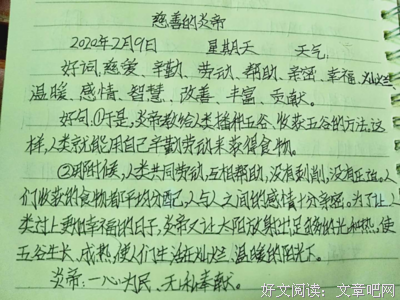 慈善的炎帝
2020年2月9日 星期天 天气:
好词:慈爱、辛勤、劳动、帮助、亲密、幸福、灿烂
温暖、感情、智慧、改善、丰富、贡献。
好句:①于是,炎帝教给人类播种五谷、收获五谷的方法,这
样,人类就能用自己辛勤劳动来获得食物。
②那时候,人类共同劳动,互相帮助,没有剥削,没有正迫,人
们收获的食物都平均分配,人与人之间的感情十分亲密。为了让人
类过上更加幸福的日子,炎帝又让太阳放射出足够的光和热,使
五谷生长、成熟,使人们生活在灿烂、温暖的阳光下。
炎帝:一心为民、无私奉献。
好文阅读:文章吧网